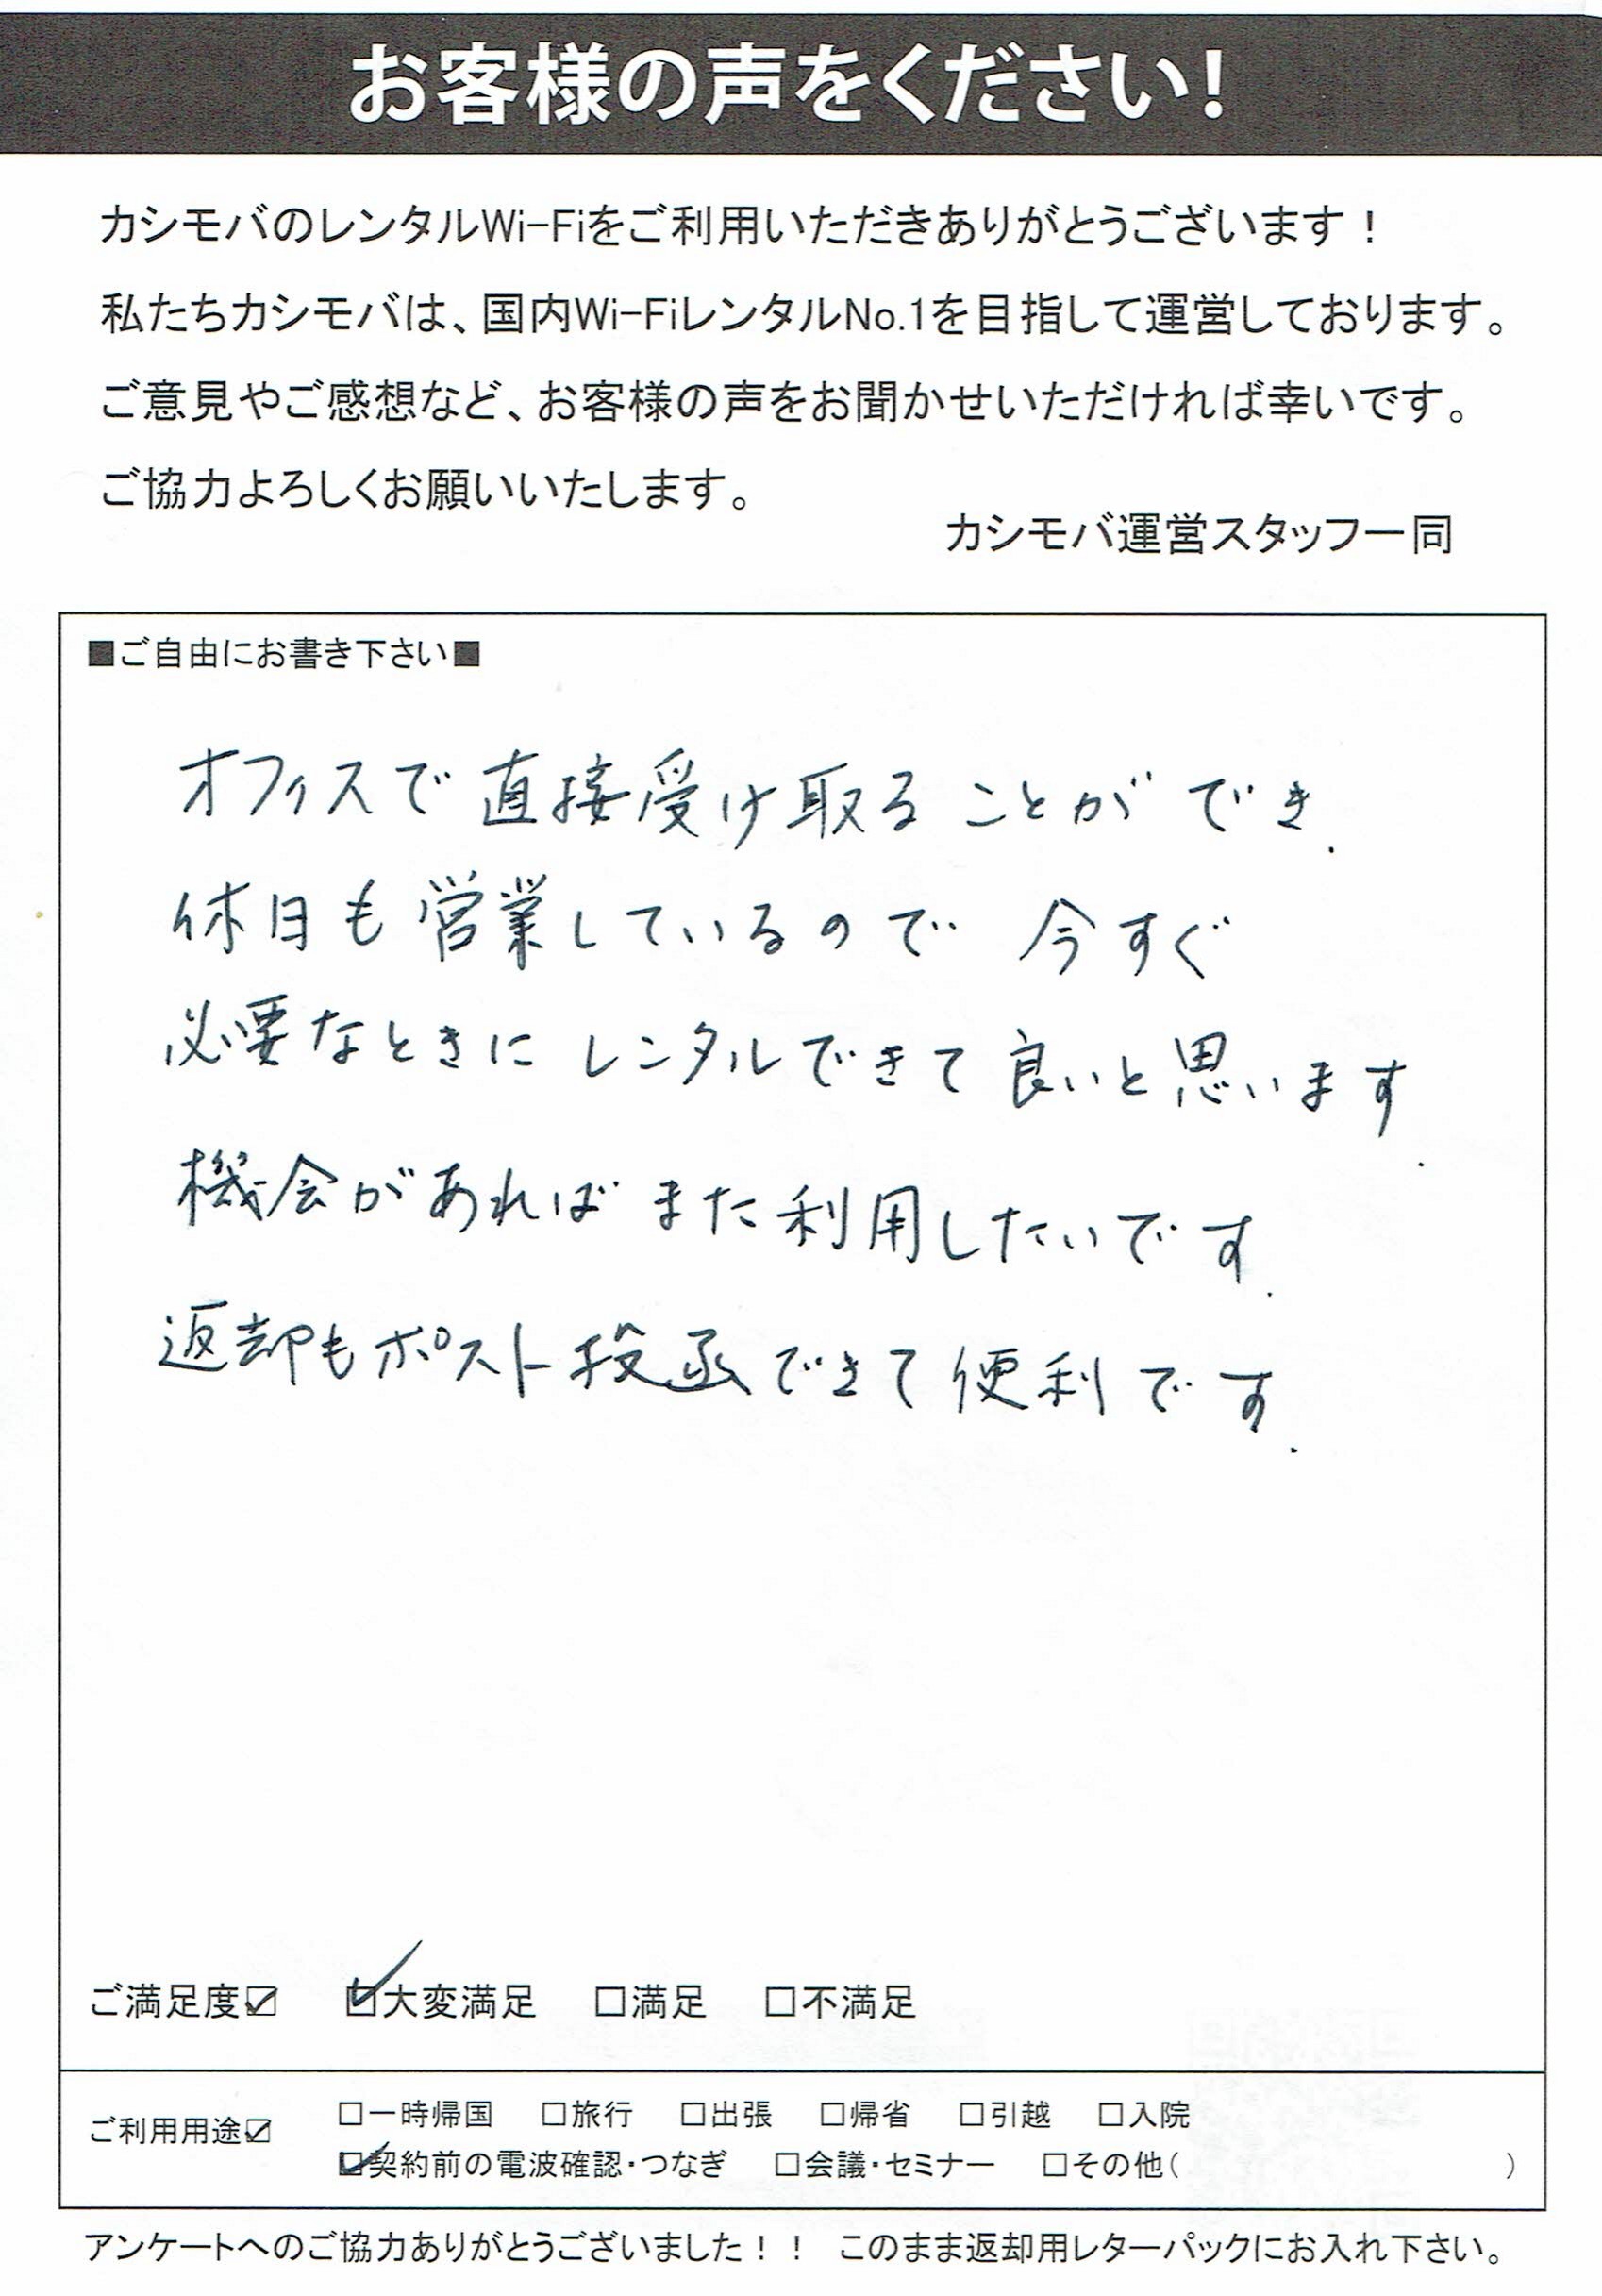 お客様の声をください!
カシモバのレンタルWi-Fiをご利用いただきありがとうございます！
私たちカシモバは、国内Wi-FiレンタルNo.1を目指して運営しております。
ご意見やご感想など、お客様の声をお聞かせいただければ幸いです。
ご協力よろしくお願いいたします。
カシモバ運営スタッフ一同
■ご自由にお書き下さい■
オフィスで直接受け取ることができ.
休日も営業しているので 今すぐ
必要なときに レンタルできて良いと思います.
機会があれば また利用したいです.
返却もポスト投函できて便利です.
ご満足度☑ ☑大変満足 □満足 □不満足
ご利用用途☑ □一時帰国 □旅行 □出張 □帰省 □引越 □入院
☑契約前の電波確認・つなぎ □会議・セミナー □その他( )
アンケートへのご協力ありがとうございました！！ このまま返却用レターパックにお入れ下さい。